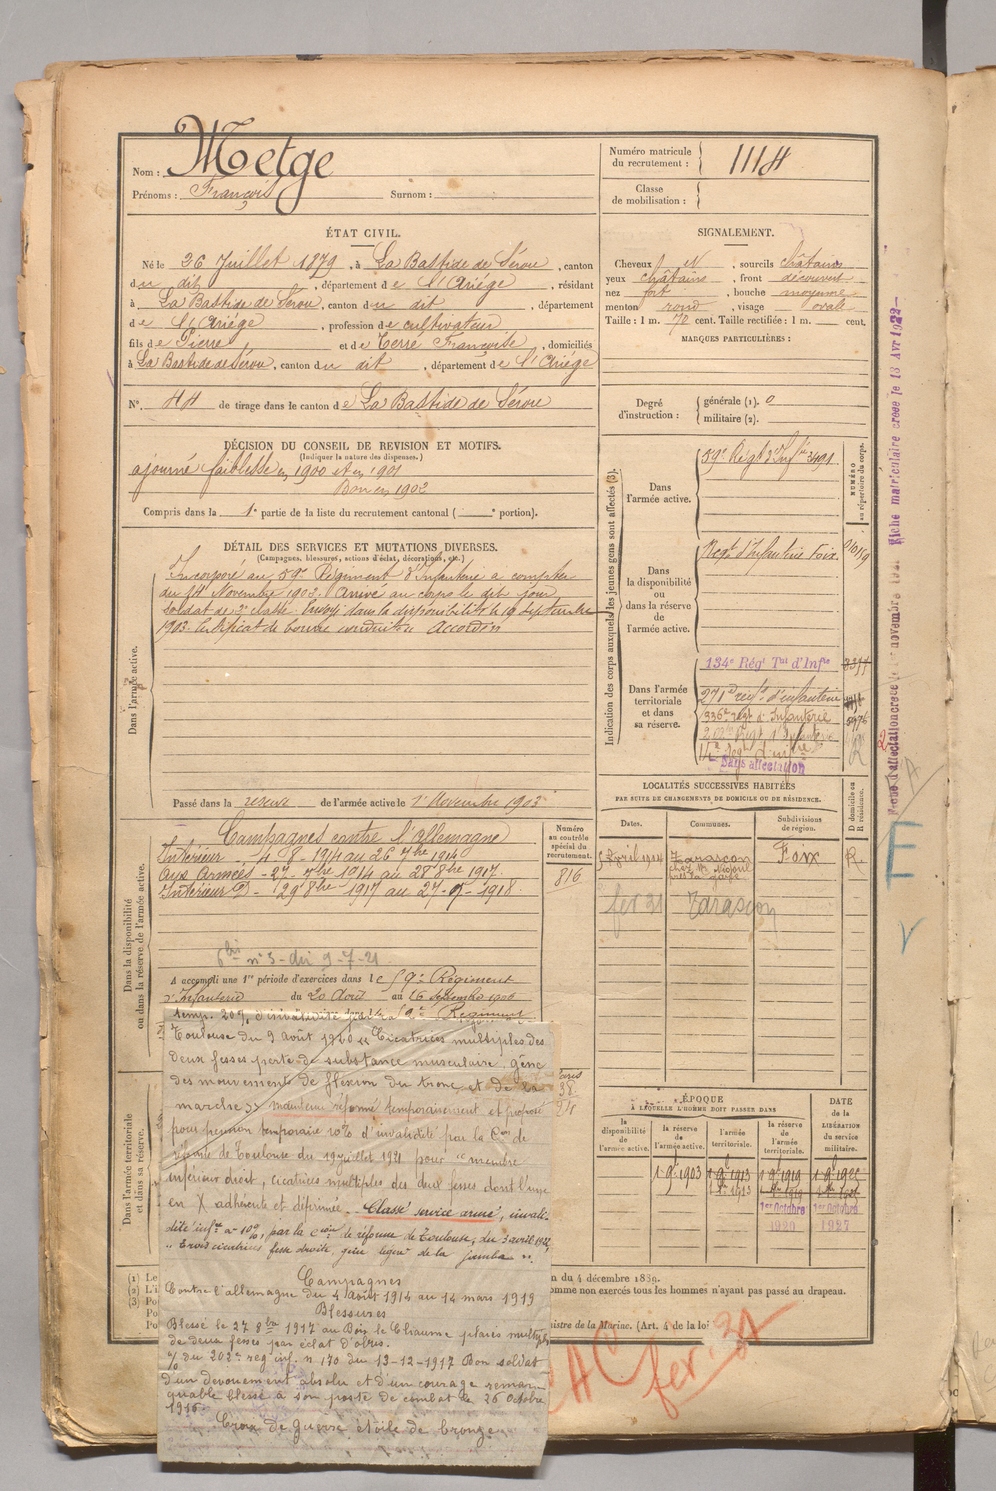 Nom : Metge
Prénoms : François Surnom :
ÉTAT CIVIL.
Né le 26 Juillet 1879, à La Bastide de Sérou, canton
du dit, département de l'Ariége, résidant
à La Bastide de Sérou, canton du dit, département
de l'Ariége, profession de cultivateur
fils de Pierre et de Terré Françoise, domiciliés
à La Bastide de Sérou, canton du dit, département de l'Ariége
N° 44 de tirage dans le canton de La Bastide de Sérou
DÉCISION DU CONSEIL DE REVISION ET MOTIFS.
(Indiquer la nature des dispenses.)
ajourné faiblesse en 1900 et en 1901
Bon en 1902
Compris dans la 1e partie de la liste du recrutement cantonal ( e portion).
DÉTAIL DES SERVICES ET MUTATIONS DIVERSES.
(Campagnes, blessures, actions d'éclat, décorations, etc.)
Dans l'armée active.
Incorporé au 59e Régiment d'Infanterie à compter
du 14 Novembre 1902. Arrivé au corps le dit jour
soldat de 2e classe. Envoyé dans la disponibilité le 19 septembre
1903. Certificat de bonne conduite Accordé
Passé dans la réserve de l'armée active le 1er Novembre 1903
Dans la disponibilité
ou dans la réserve de l'armée active.
Campagnes contre l'allemagne
Intérieur - 4 - 8 - 1914 au 26 7bre 1914
Aux Armées - 27 - 7bre 1914 au 28 8bre 1917
Intérieur - 29 8bre 1917 au 27 - 9 - 1918
n° 3 - du 9 - 7 - 21
A accompli une 1re période d'exercices dans le 59e Régiment
d'Infanterie du 20 Août au 16 septembre 1906
Numéro
au contrôle
spécial du
recrutement.
816
Dans l'armée territoriale
et dans sa réserve.
temp. 20% d'invalidité
Toulouse du 9 Août 1920 « Cicatrices multiples des
deux fesses perte de substance musculaire, gêne
des mouvements de flexion du tronc et de la
marche » maintenu réformé temporairement et proposé
pour pension temporaire 10% d'invalidité par la Con de
réforme de Toulouse du 19 juillet 1921 pour " membre
inférieur droit, cicatrices multiples des deux fesses dont l'une
en X adhérente et déprimée - Classé service armé, invali-
dité infre à 10%, par la Cion de réforme de Toulouse, du 3 avril 1922
" Trois cicatrices fesse droite, gêne légère de la jambe ".
Campagnes
Contre l'allemagne du 4 août 1914 au 14 mars 1919
Blessures
Blessé le 27 8bre 1917 au Bois le Chaume plaies multiples
de deux fesses par éclat d'obus.
% du 202e reg inf. n 170 du 13-12-1917 Bon soldat
d'un dévouement absolu et d'un courage remar-
quable blessé à son poste de combat le 26 Octobre
1916.
Croix de Guerre étoile de bronze
Numéro matricule
du recrutement : 1114
Classe
de mobilisation :
SIGNALEMENT.
Cheveux N, sourcils châtains
yeux châtains, front découvert
nez fort, bouche moyenne
menton rond, visage ovale
Taille : 1 m. 70 cent. Taille rectifiée : 1 m. cent.
MARQUES PARTICULIÈRES :
Degré
d'instruction :
générale (1). 0
militaire (2).
Indication des corps auxquels les jeunes gens sont affectés (3).
NUMÉRO
au répertoire du corps.
Dans
l'armée active.
59e Régt d'Infie 3491
Dans
la disponibilité
ou
dans la réserve
de
l'armée active.
Regt d'Infanterie Foix
Dans l'armée
territoriale
et dans
sa réserve.
134e Régt Tal d'Infie
271e regt d'infanterie
336e regt d'Infanterie 5976
202e Regt d'Infanterie
Sans affectation
LOCALITÉS SUCCESSIVES HABITÉES
PAR SUITE DE CHANGEMENTS DE DOMICILE OU DE RÉSIDENCE.
Dates.
Communes.
Subdivisions
de région.
D domicile ou
R résidence.
5 Avril 1904 Tarascon Foix R.
près la gare
fer 31 Tarascon
ÉPOQUE
À LAQUELLE L'HOMME DOIT PASSER DANS
DATE
de la
LIBÉRATION
du service
militaire.
la
disponibilité
de
l'armée active.
la réserve
de
l'armée active.
l'armée
territoriale.
la réserve
de
l'armée
territoriale.
1 9 1903 1 9 1913 1 9 1919
1er Octobre 1er Octobre
1920 1927
(1) Le
(2) L'i
(3) Po
Po
Po
n du 4 décembre 1889.
omme non exercés tous les hommes n'ayant pas passé au drapeau.
inistre de la Marine. (Art. 4 de la loi
fer. 31
Fiche matriculaire creee le 13 Avr 1922